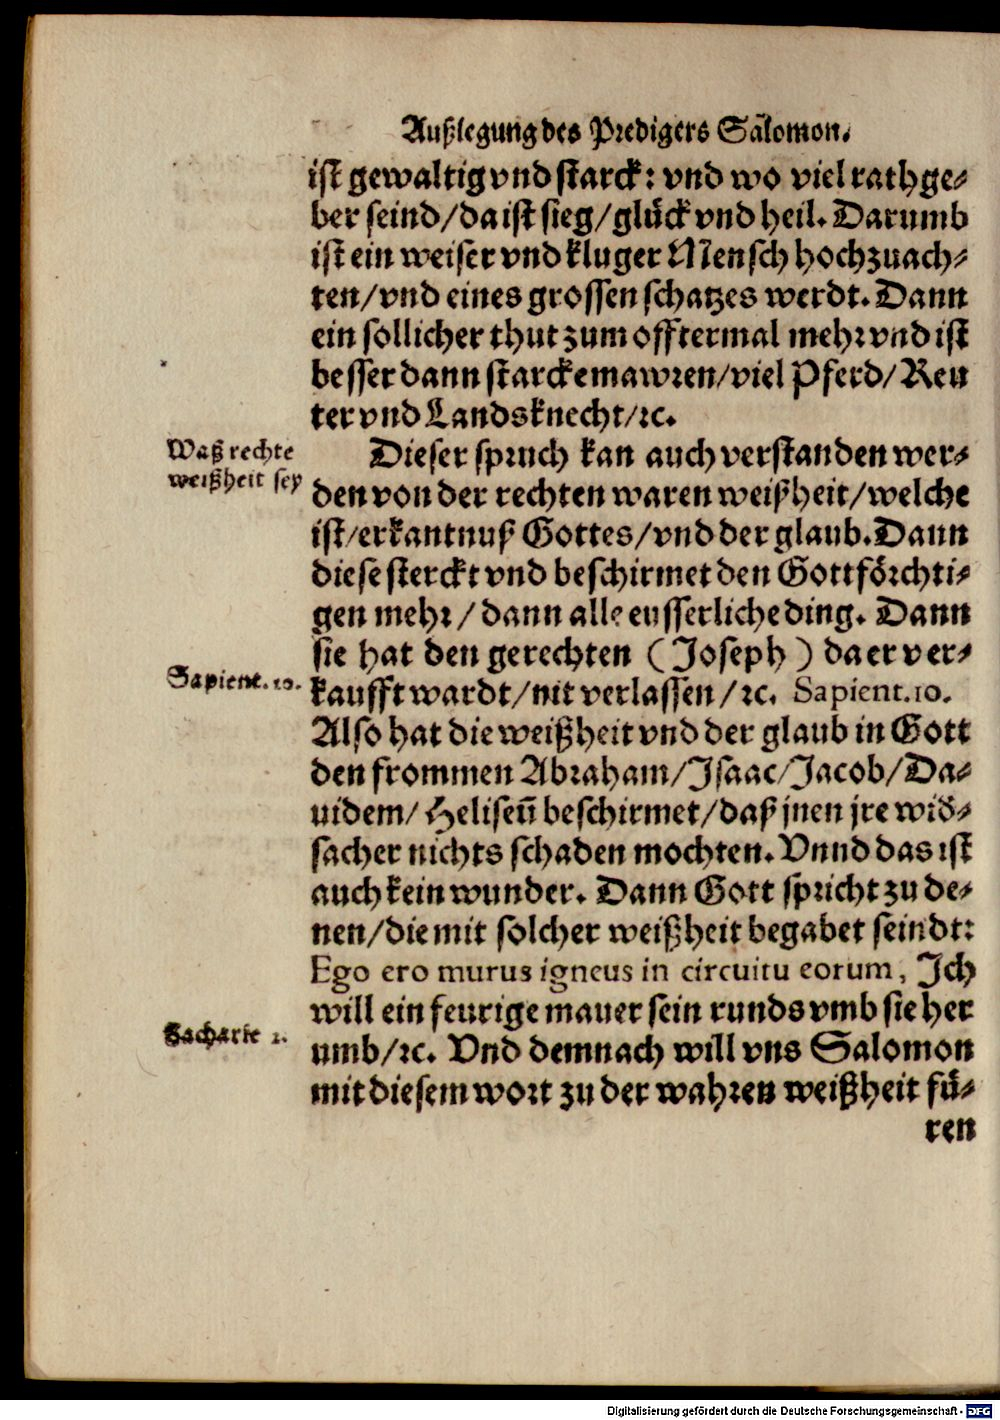 Außlegung des Predigers Salomon.
ist gewaltig vnd starck: vnd wo viel rathge-
ber seind/da ist sieg/glück vnd heil. Darumb
ist ein weiser vnd kluger Mensch hochzuach-
ten/vnd eines grossen schatzes werdt. Dann
ein sollicher thut zum offtermal mehr vnd ist
besser dann starcke mawren/viel Pferd/Reu
ter vnd Landsknecht/ꝛc.
Waß rechte
weißheit sey
Dieser spruch kan auch verstanden wer-
den von der rechten waren weißheit/welche
ist/erkantnuß Gottes/vnd der glaub. Dann
diese sterckt vnd beschirmet den Gottförchti-
gen mehr/dann alle eusserliche ding. Dann
sie hat den gerechten (Joseph) da er ver-
Sapient. 10.
kaufft wardt/nit verlassen/ꝛc. Sapient.10.
Also hat die weißheit vnd der glaub in Gott
den frommen Abraham/Isaac/Jacob/Da-
uidem/Heliseū beschirmet/daß jnen jre wid-
sacher nichts schaden mochten. Vnnd das ist
auch kein wunder. Dann Gott spricht zu de-
nen/die mit solcher weißheit begabet seindt:
Ego ero murus igneus in circuitu eorum, Ich
will ein feurige mauer sein runds vmb sie her
Zacharie 2.
umb/ꝛc. Vnd demnach will vns Salomon
mit diesem wort zu der wahren weißheit fü-
ren
Digitalisierung gefördert durch die Deutsche Forschungsgemeinschaft - DFG